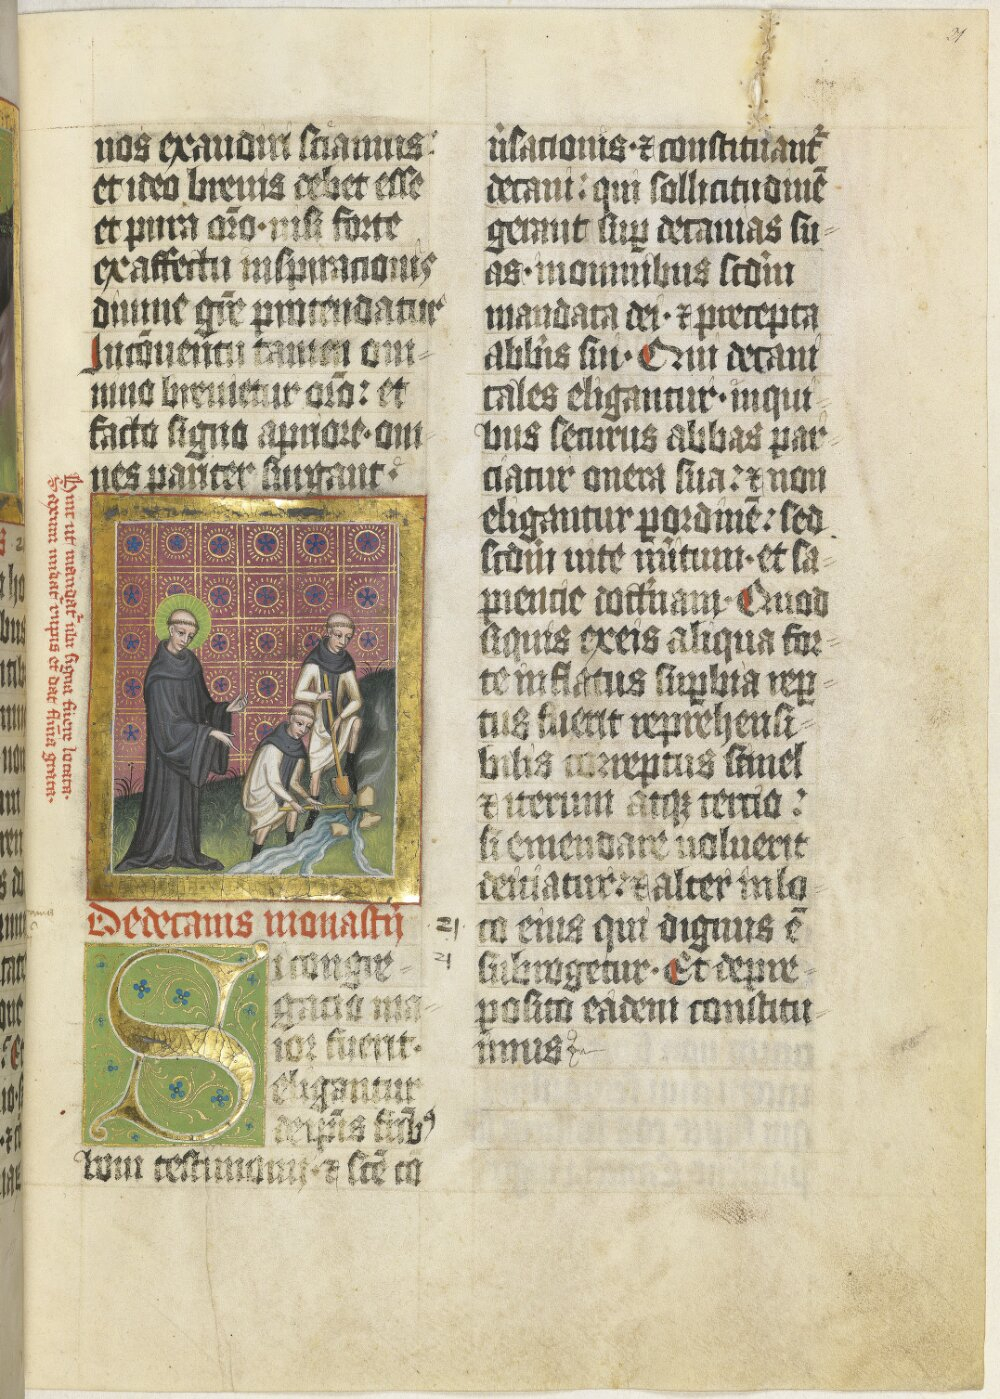 21
nos exaudiri sciamus:
et ideo brevis debet esse
et pura or̄o · nisi forte
ex affectu inspiracionis
divine gr̄e protendatur
In cōventu tamen om-
nino brevietur or̄o: et
facto signo a priore · om-
nes parit̄er surgant:
De decanis monast̄ij
21
21
Si congre-
gacio ma-
ior fuerit ·
eligantur
de ip̄is frīb9
boni testimonij · ⁊ sc̄e cō
v̄sacionis · ⁊ constituant̄
decani: qui sollicitudinē
gerant suꝑ decanias su-
as · in omnibus scd̄m
mandata dei · ⁊ precepta
abb̄is sui · Qui decani
tales eligantur · in qui-
bus securus abbas par-
ciatur onera sua: ⁊ non
eligantur ꝑ ordinē: sed
scd̄m vite m̄itum · et sa-
piencie doct̄nam · Quod
si quis ex eis aliqua for-
te inflatus suꝑbia rep-
tus fuerit reprehensi-
bilis correptus semel
⁊ iterum atqꝫ tercio:
si emendare noluerit
deiciatur: ⁊ alter in lo-
co eius qui dignus ē
subrogetur · Et de pre-
posito eādem constitu-
imus